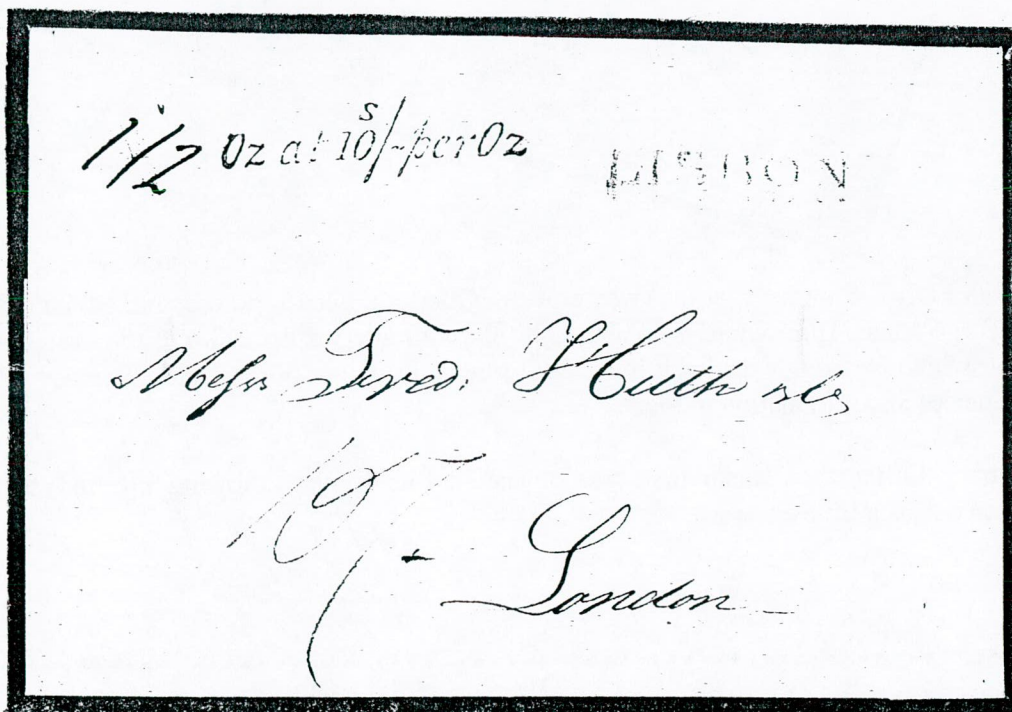 1 1/2 Oz at 10s/- per Oz
LISBON
Messrs Fred. Huth
London